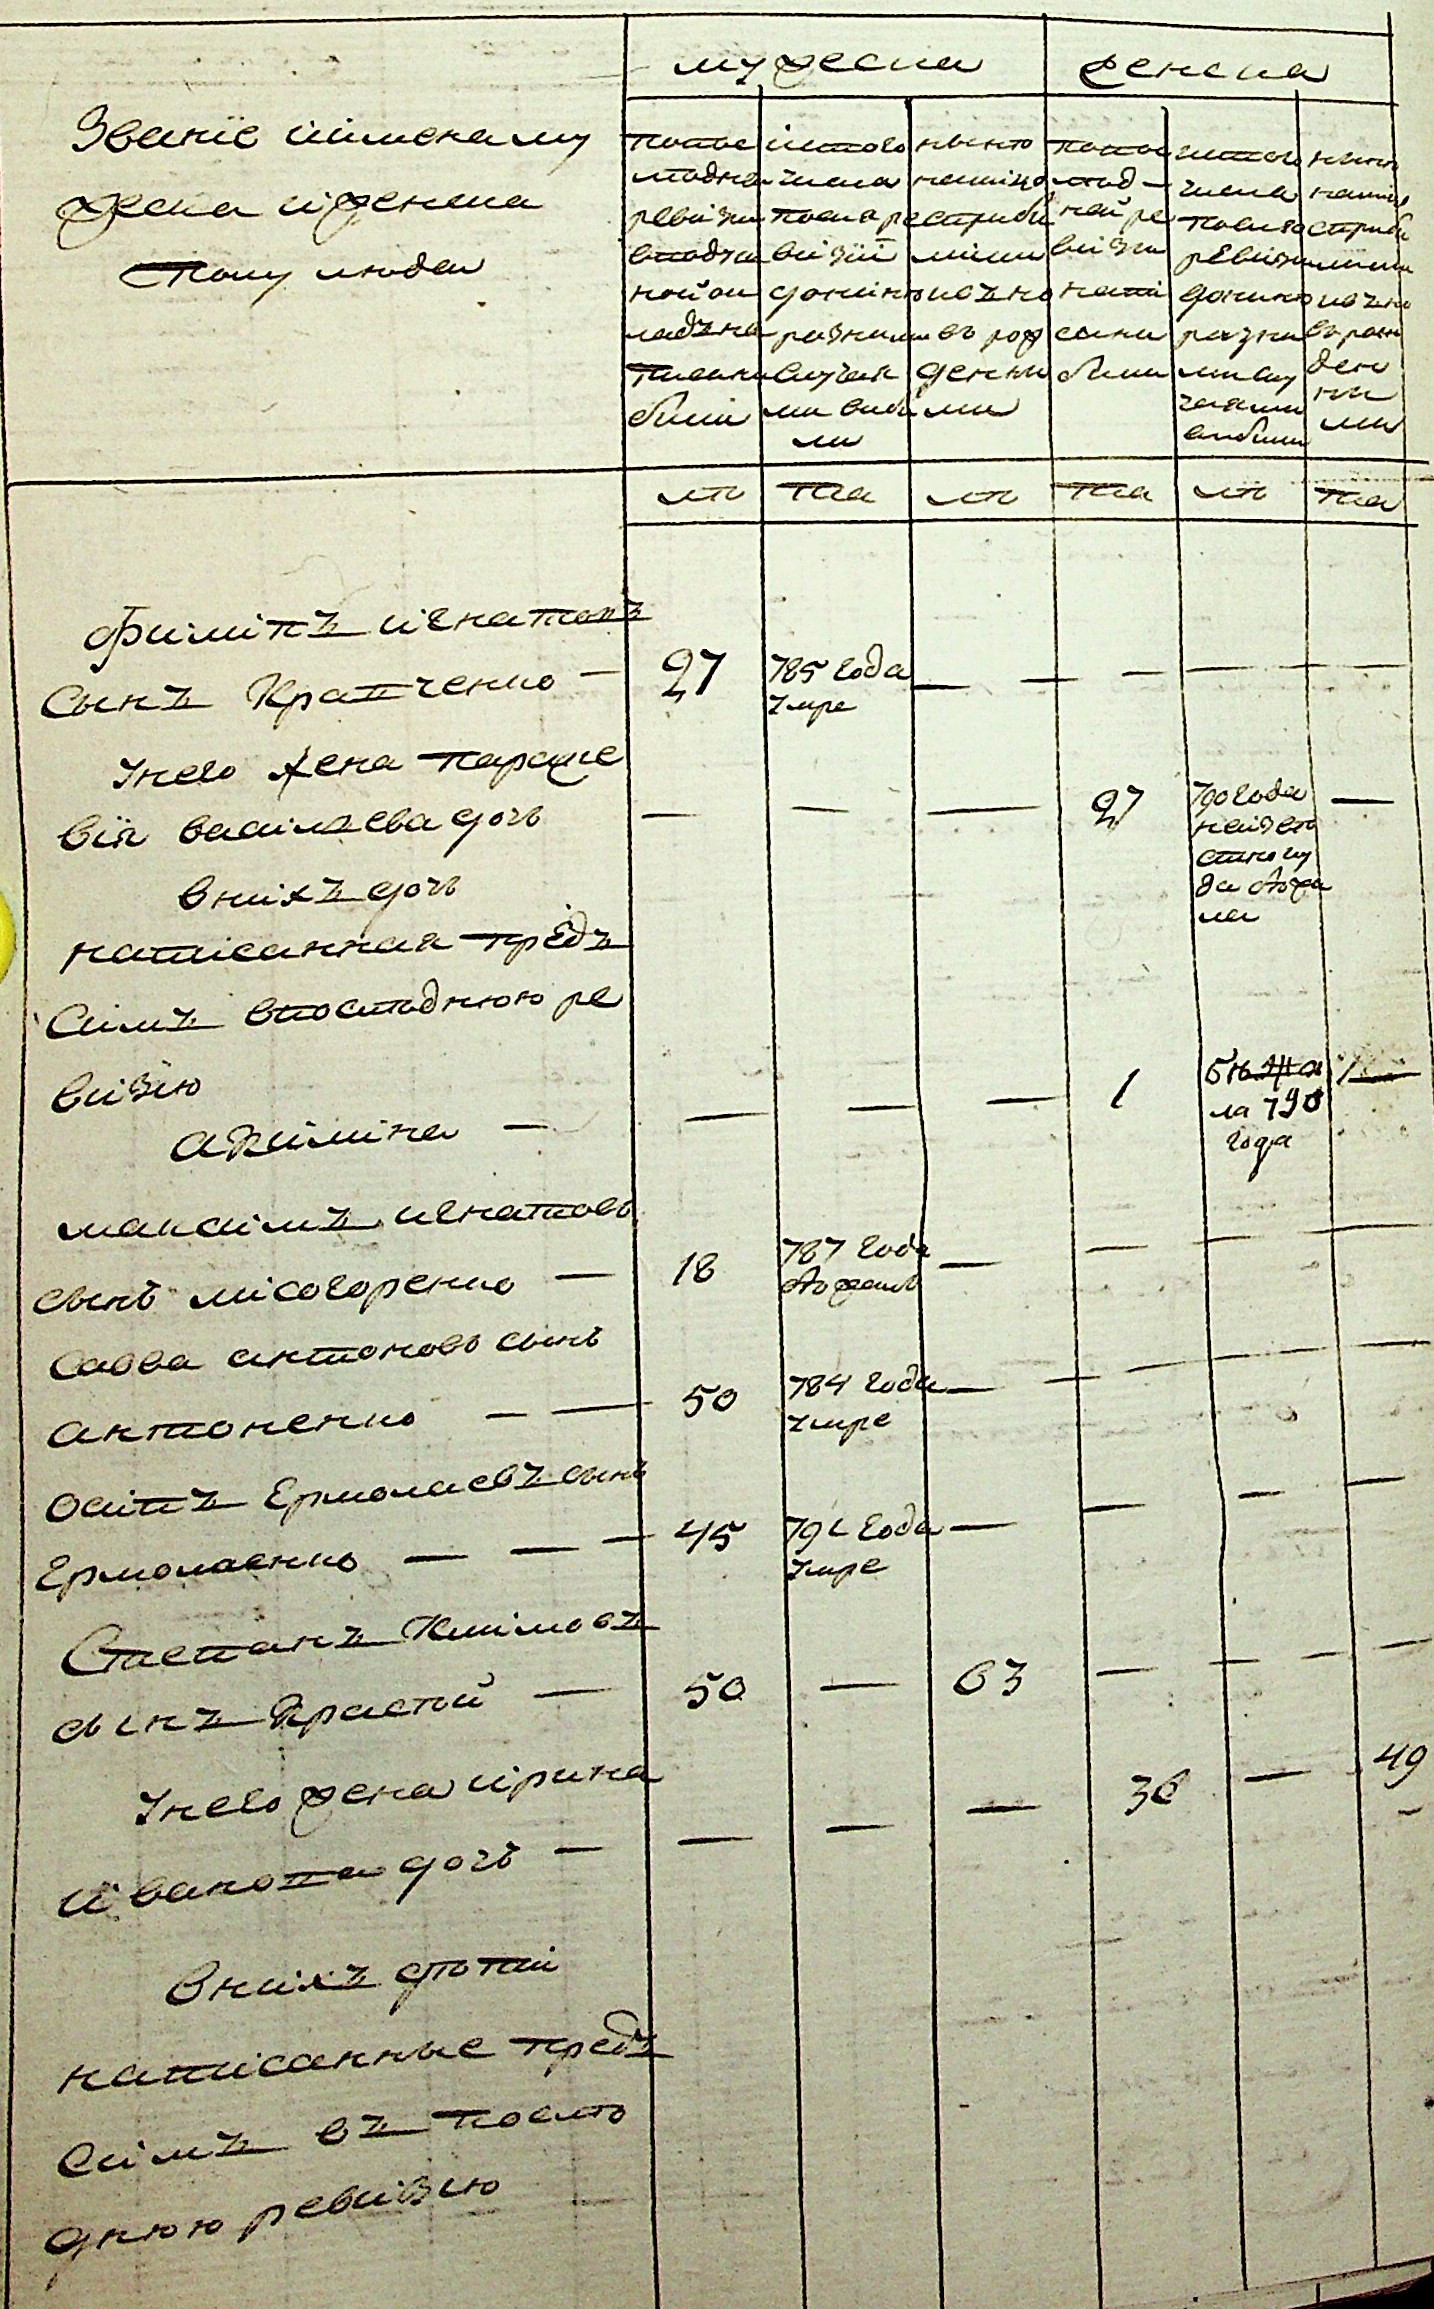 мужеска
женска
Званiе iимена му
жеска иженска
полу людей
попос
лѣдней
ревизiи
вподуш
ной ок
ладъ на
писаны
были
iизтого
числа
послѣ ре
визiи
донынѣ
разными
случая
ми выбы
ли
нынѣ
налицо
съприбы
лыми
iвъно
въ рож
денны
ми
попос
лѣд-
ней ре
визiи
напи
саны
были
изтого
числа
послѣ
ревизiи
донынѣ
разны
ми слу
чаями
выбыли
нынѣ
налицо
сприбы
лыми
iвъно
въ рож
ден
ны
ми
лѣта
лѣта
лѣта
Филипъ игнатовъ
сынъ Кравченко — 27 785 года — — — — —
умре
Унего жена параске
вiя василъева дочь — — — 27 790 года —
неизвѣ
стно ку
да бѣжа
ла
внихъ дочь
написанная предъ
симъ впослѣднюю ре
визiю
акилина — — — — 1 бѣжа
ла 790
года
максимъ игнатовъ
сынъ лисогоренко — 18 787 года — — — —
бѣжалъ
савва антоновъ сынъ
антоненко — — 50 784 года — — — — —
умре
осипъ Ермолаевъ сынъ
Ермолаенко — — — 45 791 года — — — —
умре
Степанъ Климовъ
сынъ Красный — 50 — 63 — — — —
Унего жена ирина
иванова дочь — — — — 36 — 49
внихъ дѣти
написанные предъ
симъ въ послѣ
днюю ревизiю